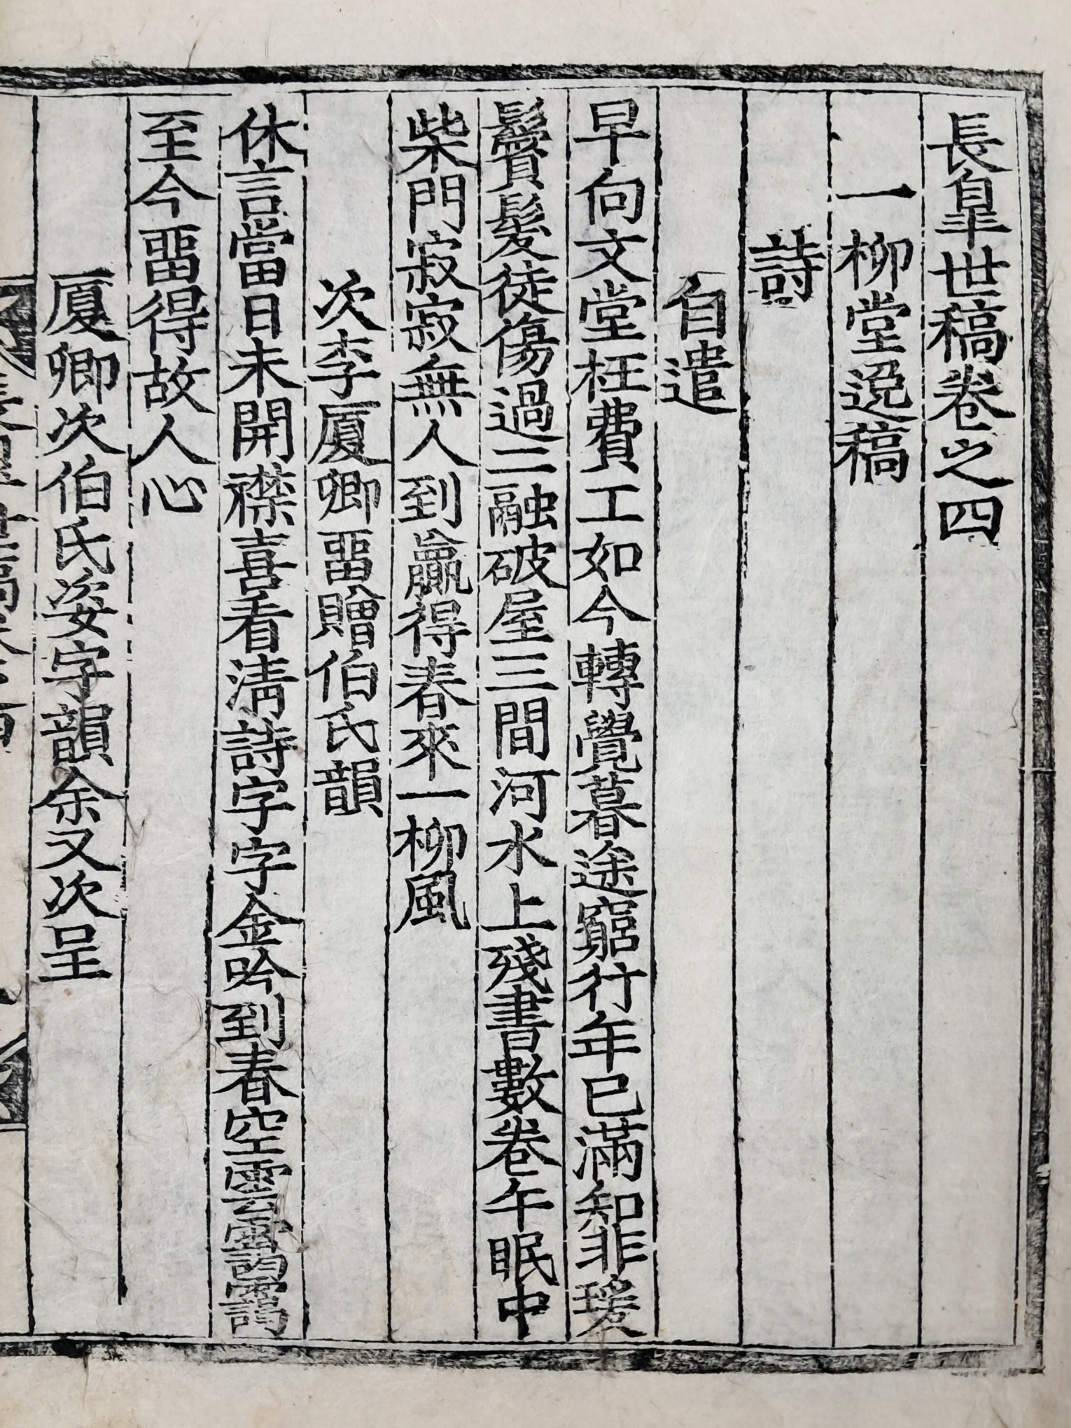 長皐世稿卷之四
一柳堂逸稿
詩
自遣
早向文堂枉費工如今轉覺暮途窮行年已滿知非瑗
鬢髮徒傷過二融破屋三間河水上殘書數卷午眠中
柴門寂寂無人到贏得春來一柳風
次李厦卿畱贈伯氏韻
休言當日未開襟喜看淸詩字字金吟到春空雲靄靄
至今畱得故人心
厦卿次伯氏姿字韻余又次呈